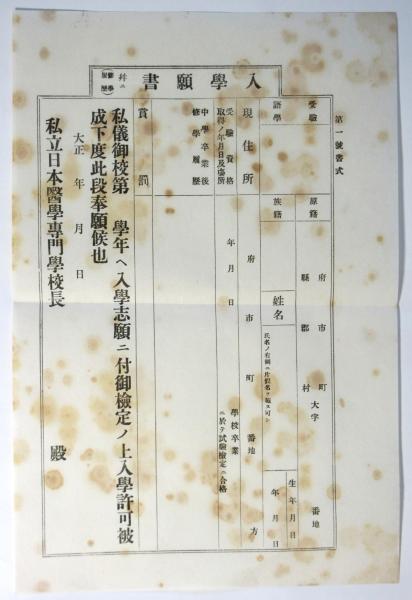 第一號書式
入學願書
幷ニ
修學履歷
受驗語學
原籍
府縣
市郡
町村
大字
番地
族籍
姓名
氏名ノ右側ニ片假名ヲ施ス可シ
生年月日
年月日
現住所
府
市
町
番地
方
受驗資格
取得ノ年月日及場所
年月日
學校卒業
ニ於テ試驗檢定ニ合格
中學卒業後
修學履歷
賞罰
私儀御校第 學年ヘ入學志願ニ付御檢定ノ上入學許可被
成下度此段奉願候也
大正 年 月 日
私立日本醫學專門學校長 殿